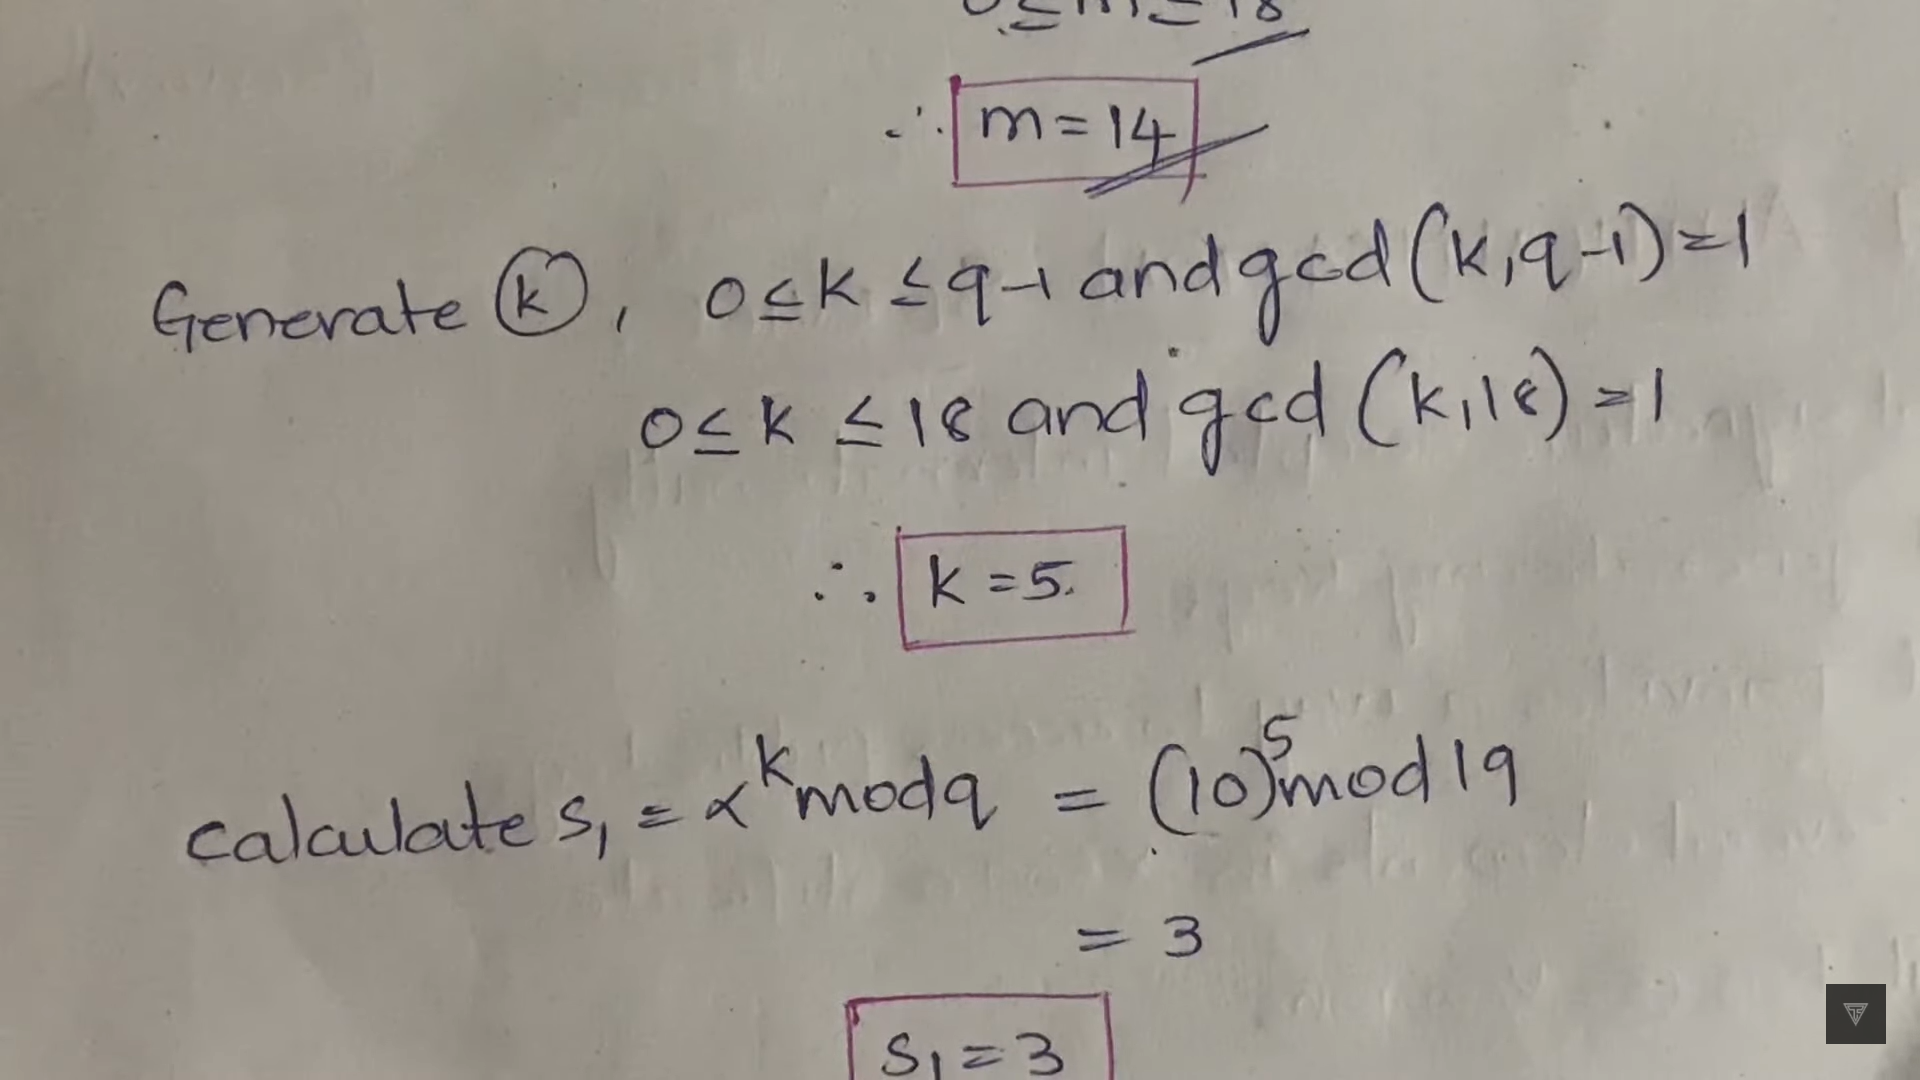 0 ≤ m ≤ 18
∴ m = 14
Generate k, 0 ≤ k ≤ q-1 and gcd (k, q-1) = 1
0 ≤ k ≤ 18 and gcd (k, 18) = 1
∴ k = 5.
Calculate S₁ = α^k mod q = (10)^5 mod 19
= 3
S₁ = 3